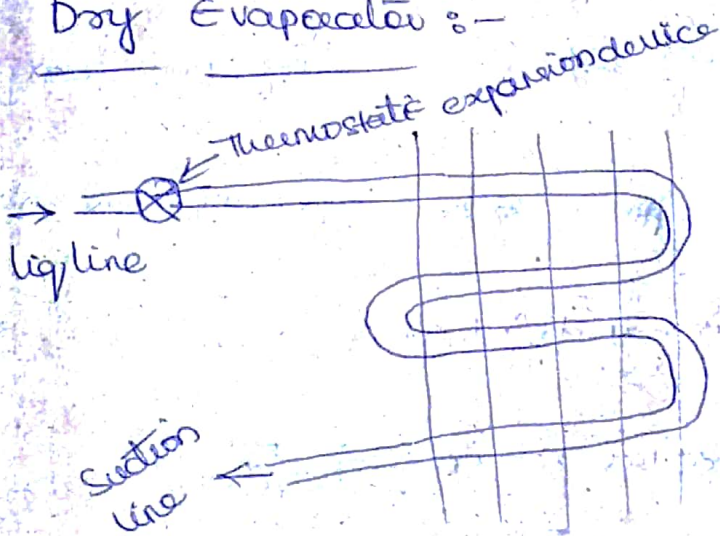 Dry Evaporator :-
Thermostatic expansion device
liq, line
Suction
line